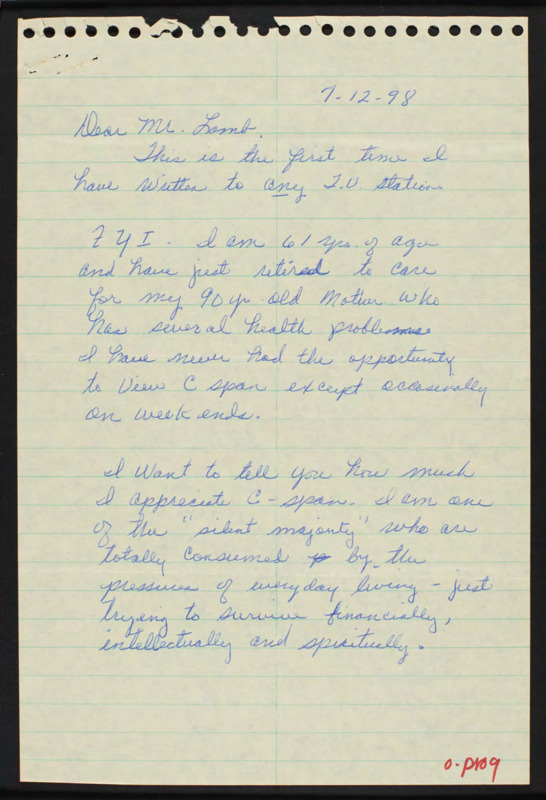 7-12-98
Dear Mr. Lamb,
This is the first time I
have written to any T.V. station
F Y I - I am 61 yrs. of age
and have just retired to care
for my 90 yr old Mother who
has several health problems
I have never had the opportunity
to view C span except occasionally
on week ends.
I want to tell you how much
I appreciate C-span. I am one
of the "silent majority" who are
totally consumed by the
pressures of everyday living - just
trying to survive financially,
intellectually and spiritually.
o-prog